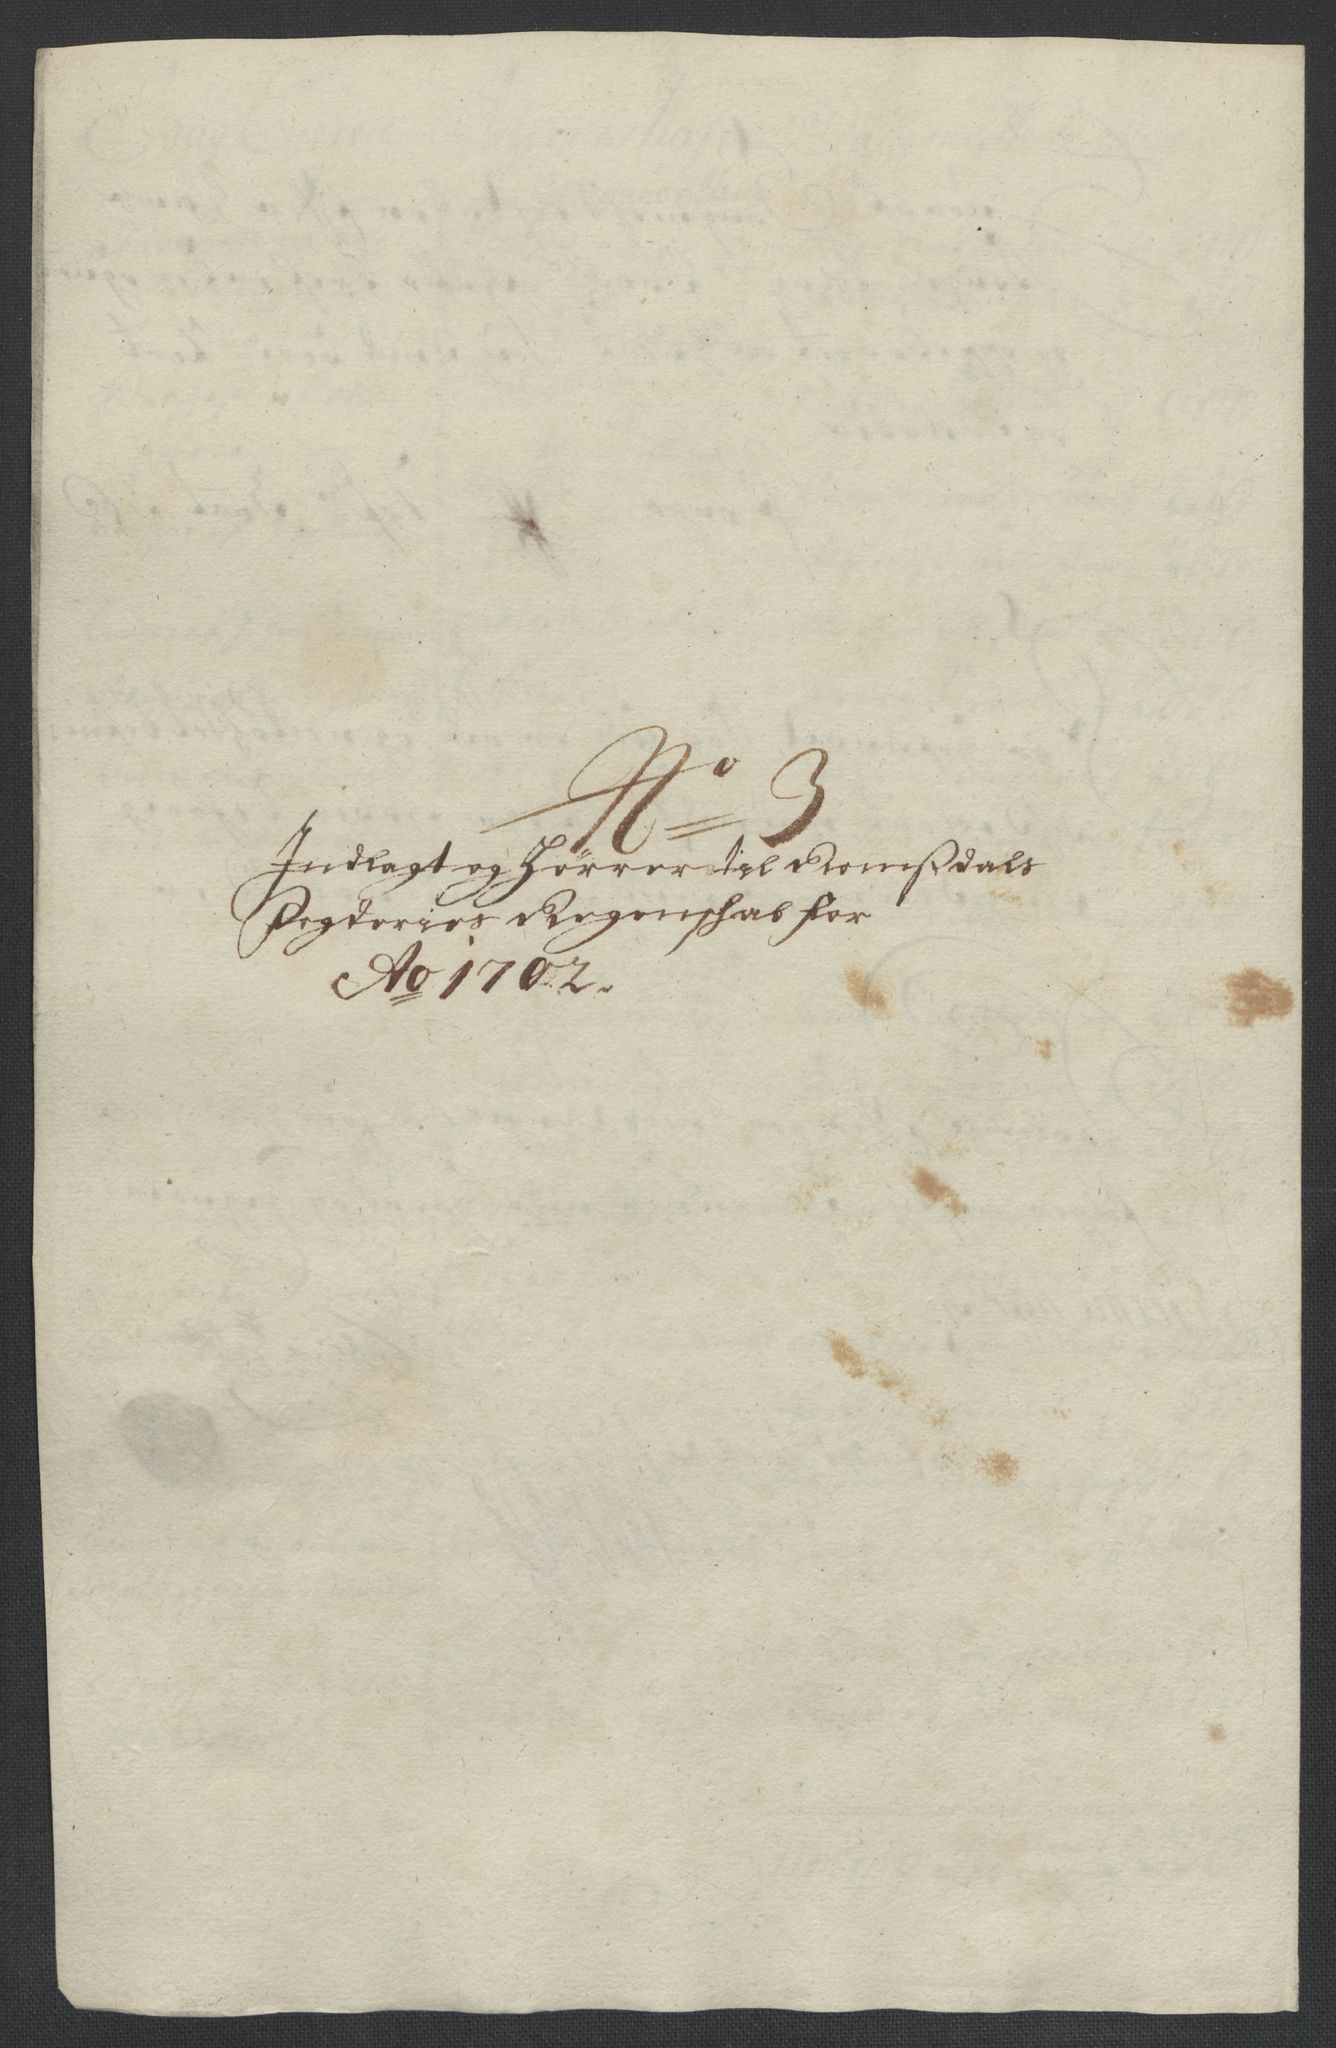 No 3
Indlagt og Hörrer til Romßdals
Fogderies Regenschab for
Ao 1702.